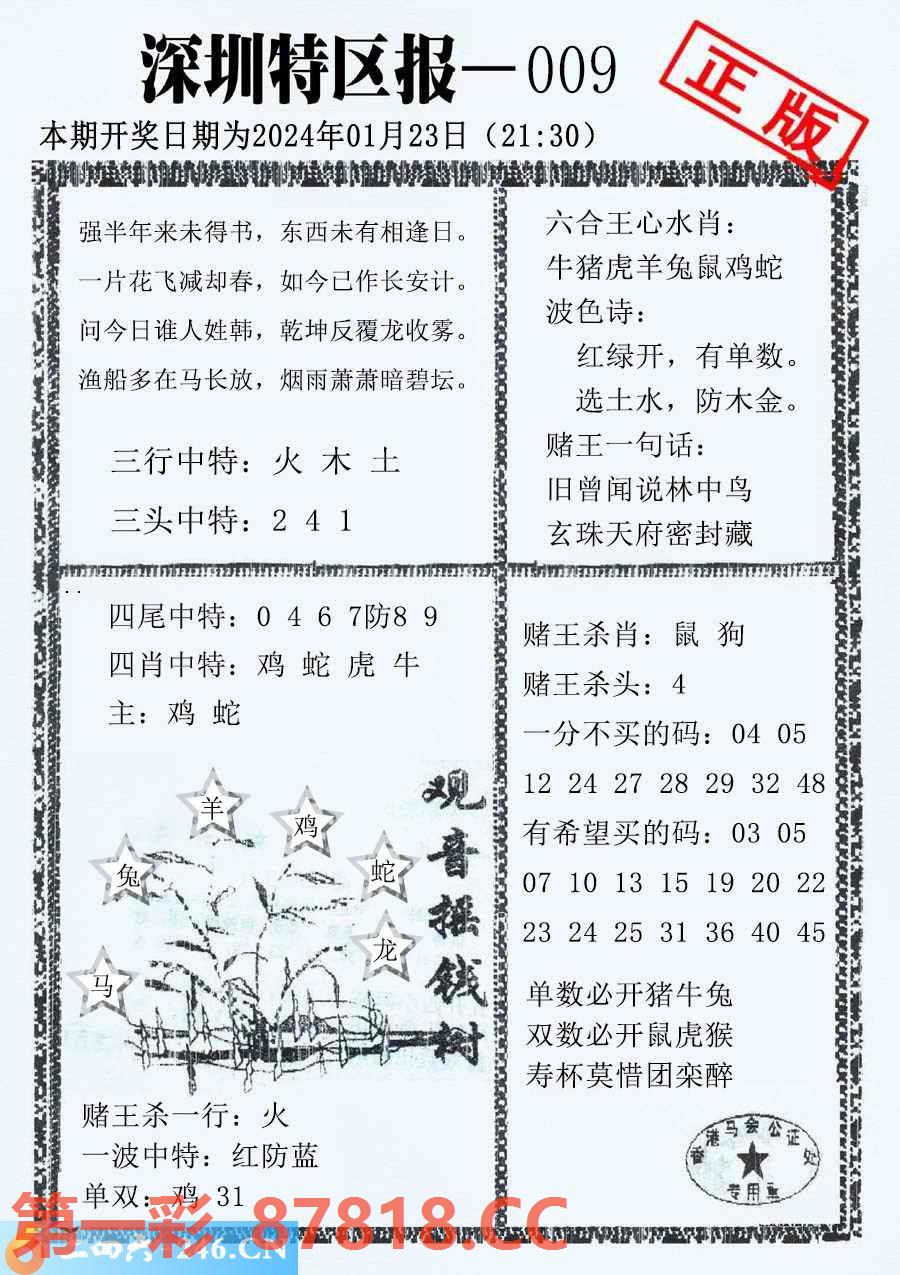 深圳特区报—009
正版
本期开奖日期为2024年01月23日（21:30）
强半年来未得书，东西未有相逢日。
一片花飞减却春，如今已作长安计。
问今日谁人姓韩，乾坤反覆龙收雾。
渔船多在马长放，烟雨萧萧暗碧坛。
三行中特：火 木 土
三头中特：2 4 1
六合王心水肖：
牛猪虎羊兔鼠鸡蛇
波色诗：
红绿开，有单数。
选土水，防木金。
赌王一句话：
旧曾闻说林中鸟
玄珠天府密封藏
四尾中特：0 4 6 7防8 9
四肖中特：鸡 蛇 虎 牛
主：鸡 蛇
羊
鸡
兔
蛇
龙
马
观音摇钱树
赌王杀一行：火
一波中特：红防蓝
单双：鸡 31
赌王杀肖：鼠 狗
赌王杀头：4
一分不买的码：04 05
12 24 27 28 29 32 48
有希望买的码：03 05
07 10 13 15 19 20 22
23 24 25 31 36 40 45
单数必开猪牛兔
双数必开鼠虎猴
寿杯莫惜团栾醉
香港马会公证处
专用章
第一彩 87818.CC
246.CN